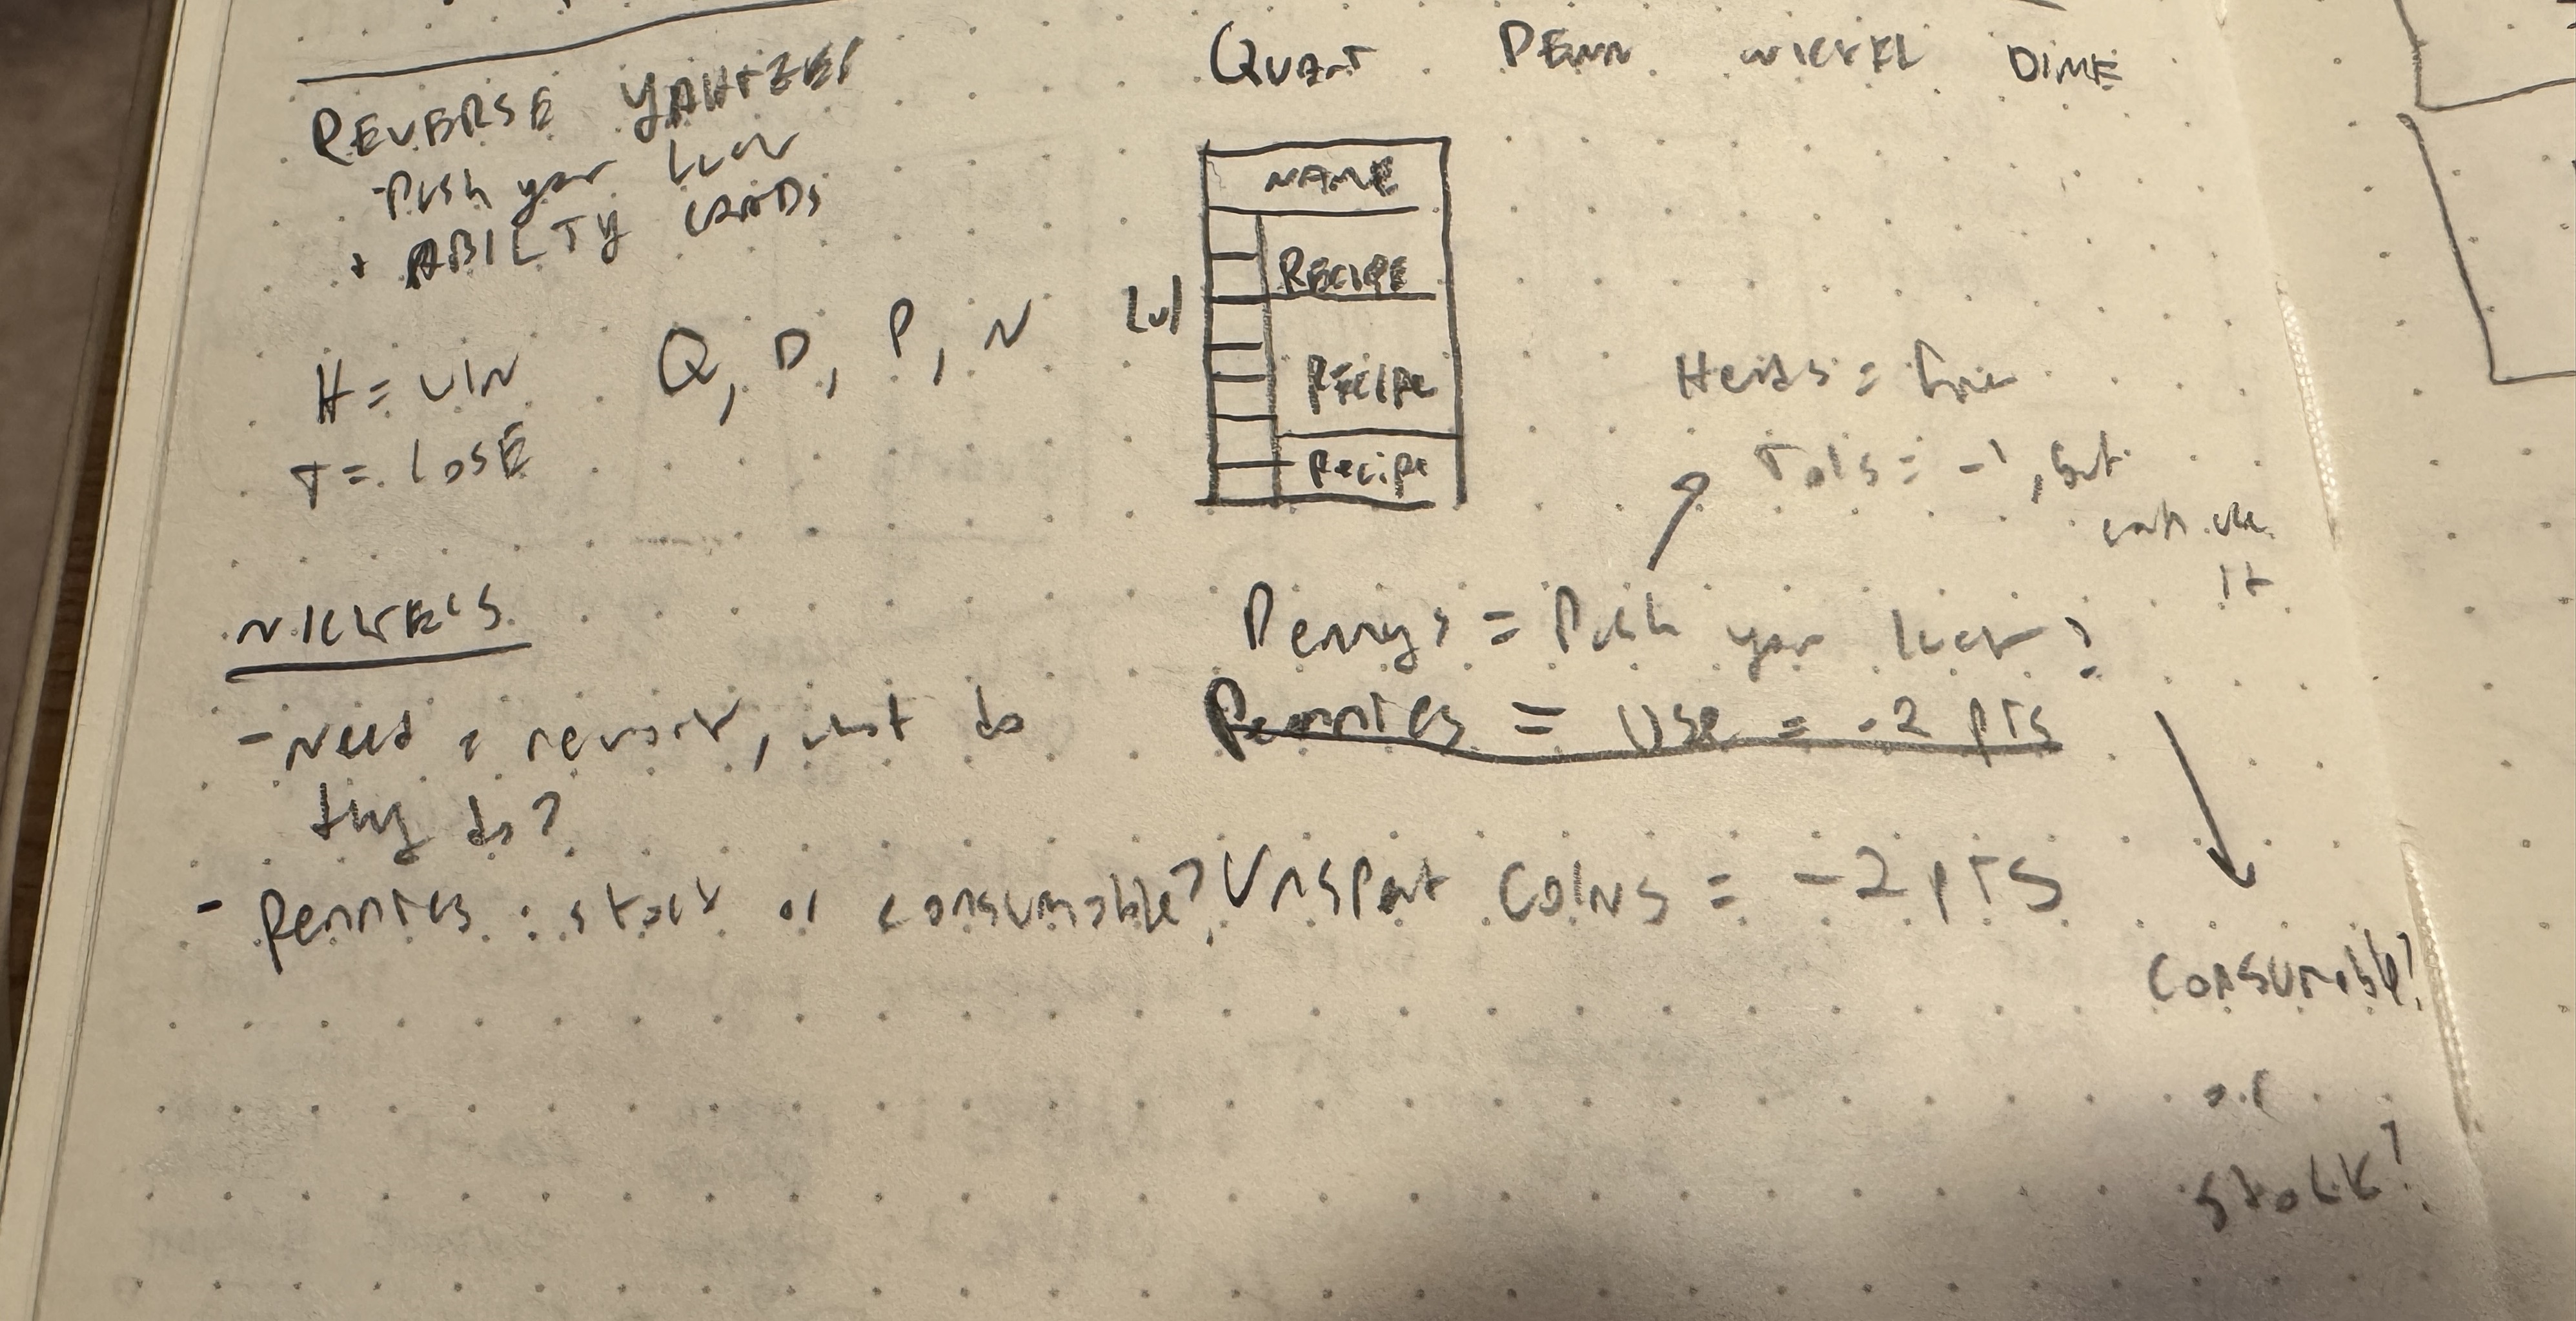 REVERSE YAHTZEE
-Push your luck
+ ABILITY CARDS
H = WIN
T = LOSE
Q, D, P, N
Quart Penn Nickel DIME
NAME
RECIPE
RECIPE
Recipe
lvl
Heads =
Tails = -1, but
can use
it
Pennys = Push your luck?
Pennies = Use = -2 pts
Unspent COINS = -2 pTS
Consumable?
or
Stock?
NICKELS
- Need a rework, what do
they do?
- Pennies : stock or consumable?